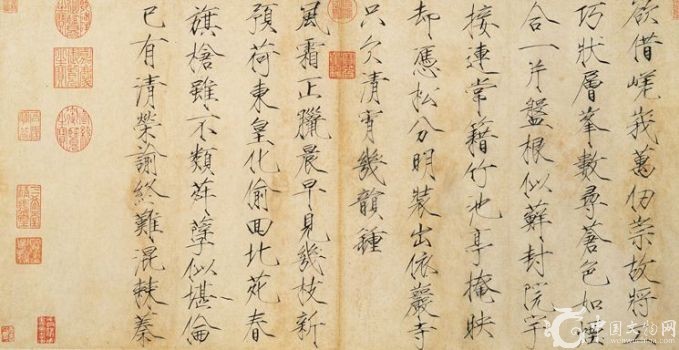 欲借嵯峨萬仞崇故將工
巧狀層峯數尋蒼色如煙
合一片盤根似蘚封院宇
接連常籍竹池亭掩映
却憑松分明裝出依巖寺
只欠清宵幾韻鍾
風霜正臘晨早見幾枝新
預荷東皇化偷回北苑春
旗槍雖不類荈孽似堪倫
已有清榮諭終難混棘蓁
中国文物网